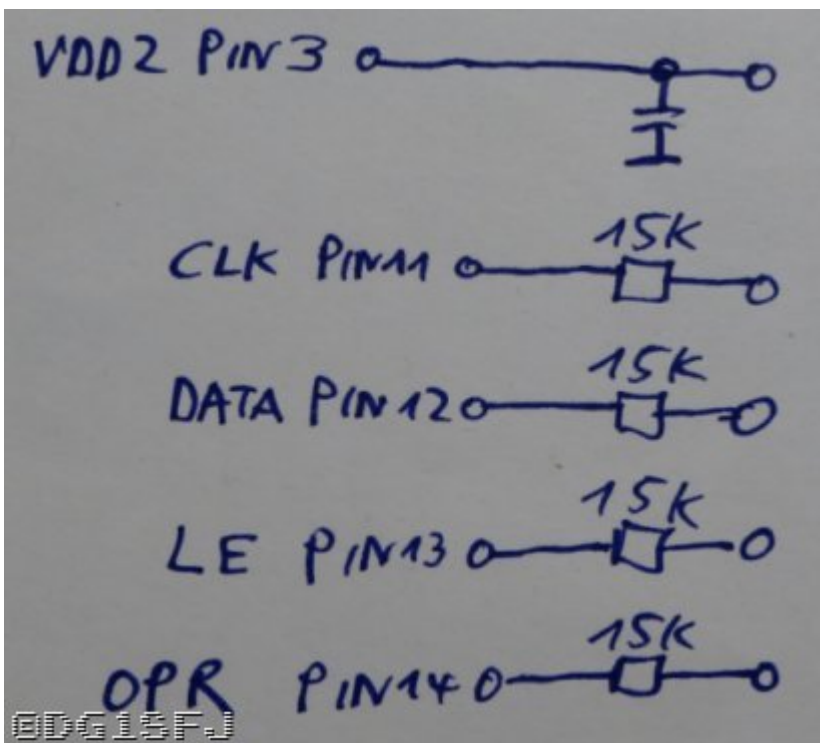 VDD2 PIN3
15K
CLK PIN11
15K
DATA PIN12
15K
LE PIN13
15K
OPR PIN14
@DG1SFJ